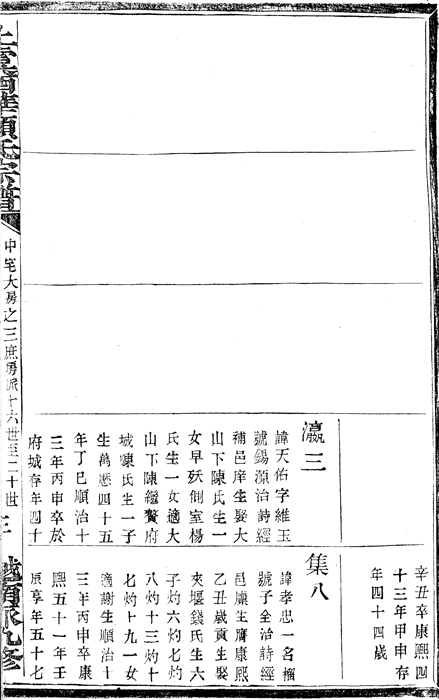 辛丑卒康熙四
十三年甲申存
年四十四歲
瀛三
諱天佑字維玉
號錫源治詩經
補邑庠生娶大
山下陳氏生一
女早殀側室楊
氏生一女適大
山下陳繼贅府
城陳氏生一子
生萬厯四十五
年丁巳順治十
三年丙申卒於
府城存年四十
集八
諱孝忠一名榴
號子全治詩經
邑廩生膺康熙
乙丑歲貢生娶
夾堰錢氏生六
子灼六灼七灼
八灼十三灼十
七灼十九一女
適謝生順治十
三年丙申卒康
熙五十一年壬
辰享年五十七
顧氏宗譜
中宅大房之三庶房派十六世至二十世
九修